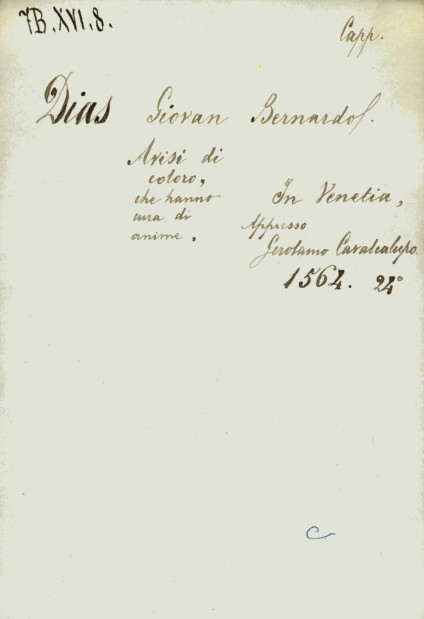 7B.XVI.8.
Capp.
Dias Giovan Bernardo.
Avisi di
coloro,
che hanno
cura di
anime.
In Venetia,
Appresso
Gerolamo Cavalcalupo.
1564. 24°
C